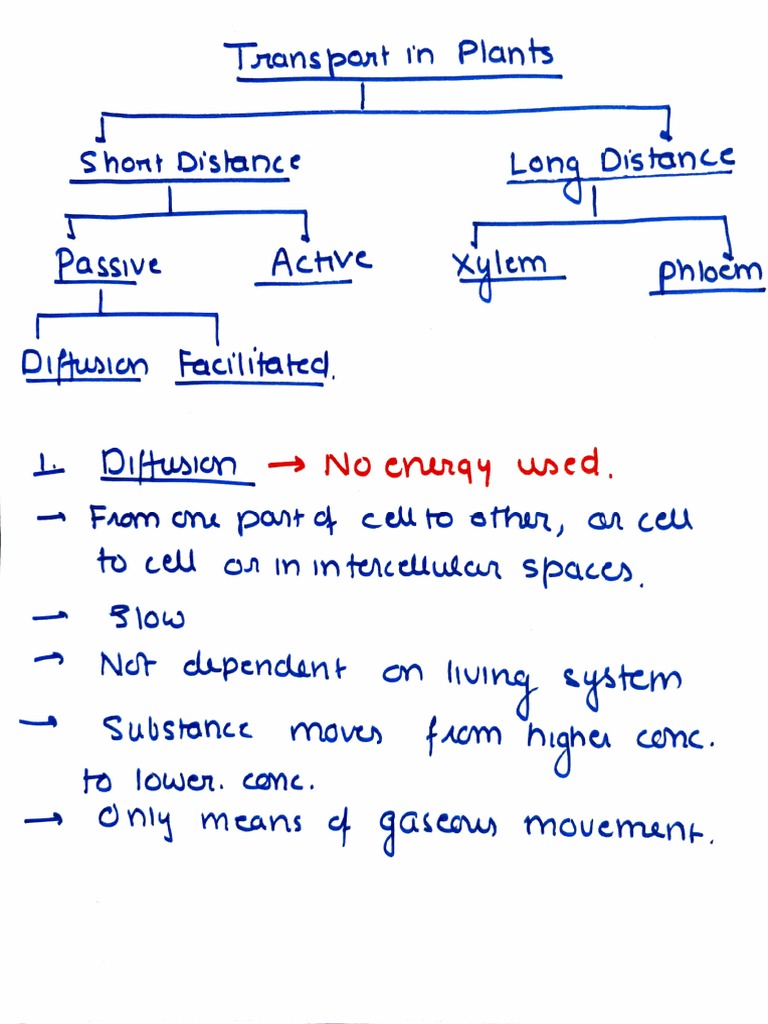 Transport in Plants
Short Distance Long Distance
Passive Active Xylem Phloem
Diffusion Facilitated.
1. Diffusion → No energy used.
→ From one part of cell to other, or cell
to cell or in intercellular spaces.
→ Slow
→ Not dependent on living system
→ Substance moves from higher conc.
to lower. conc.
→ Only means of gaseous movement.